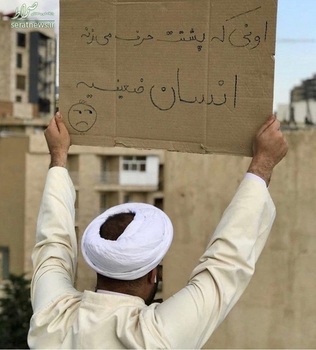 seratnews.ir
اونی که پشتت حرف میزنه
انسان ضعیفیه